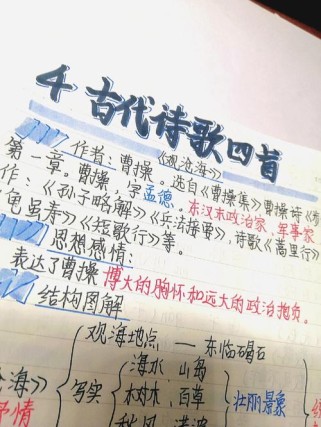 4 古代诗歌四首
《观沧海》
作者:曹操。选自《曹操集》曹操诗《
第一章。曹操,字孟德,东汉末政治家、军事家
作:《孙子略解》《兵法接要》,诗歌《蒿里行》
龟虽寿》《短歌行》等。
思想感情:
表达了曹操博大的胸怀和远大的政治抱负。
结构图解
观海地点 — 东临碣石
海》 写实 海水 山岛
树木 百草 壮丽景象
秋风 洪波
抒情